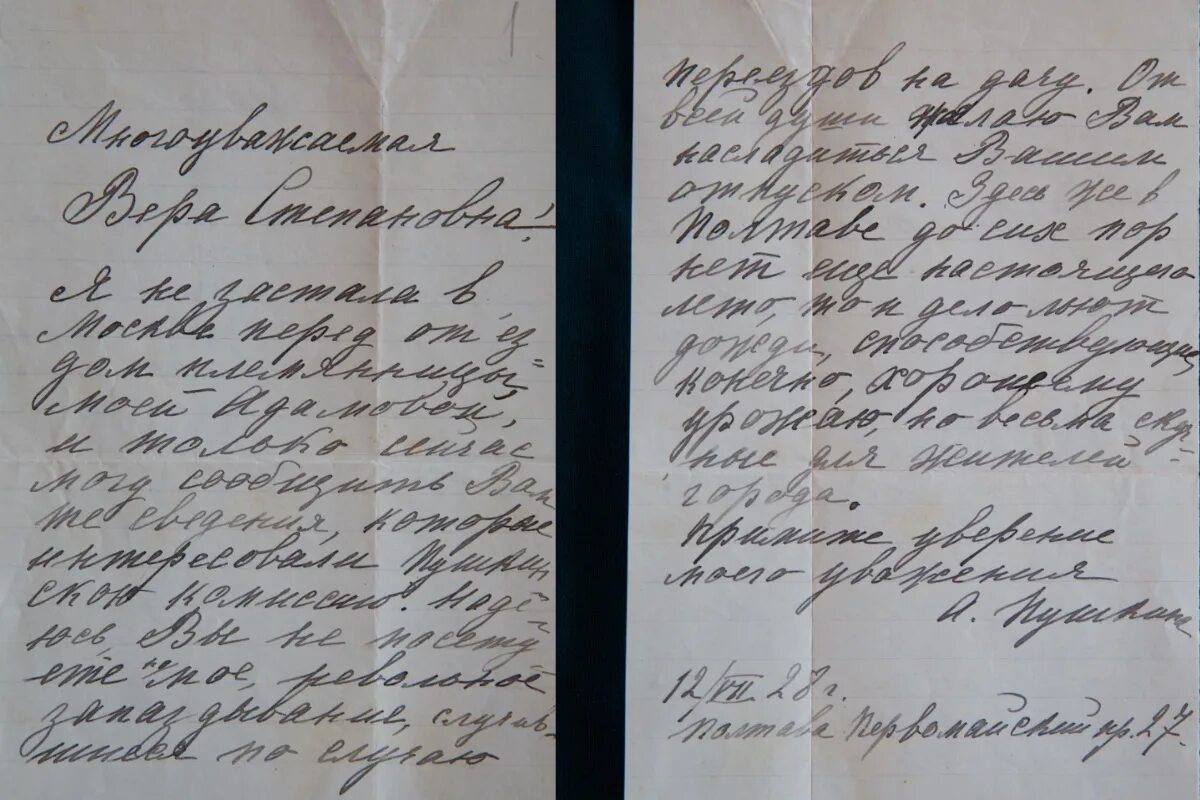 1
Многоуважаемая
Вера Степановна!
Я не застала в
Москве перед отъез=
дом племянницы
моей Адамовой,
и только сейчас
могу сообщить Вам
те сведения, которые
интересовали Пушкин
скую комиссию. Надѣ=
юсь, Вы не посету
ете на мое, невольное
запаздывание, случив-
шиеся по случаю
переездов на дачу. От
всей души желаю Вам
насладиться Вашим
отпуском. Здесь же в
Полтаве до сих пор
нет еще настоящего
лета, то и дело льют
дожди, способствующие,
конечно, хорошему
урожаю, но весьма скуч=
ные для жителей
города.
Примите уверение
моего уважения
А. Пушкина
12/VII 28 г.
Полтава Первомайский пр. 27.